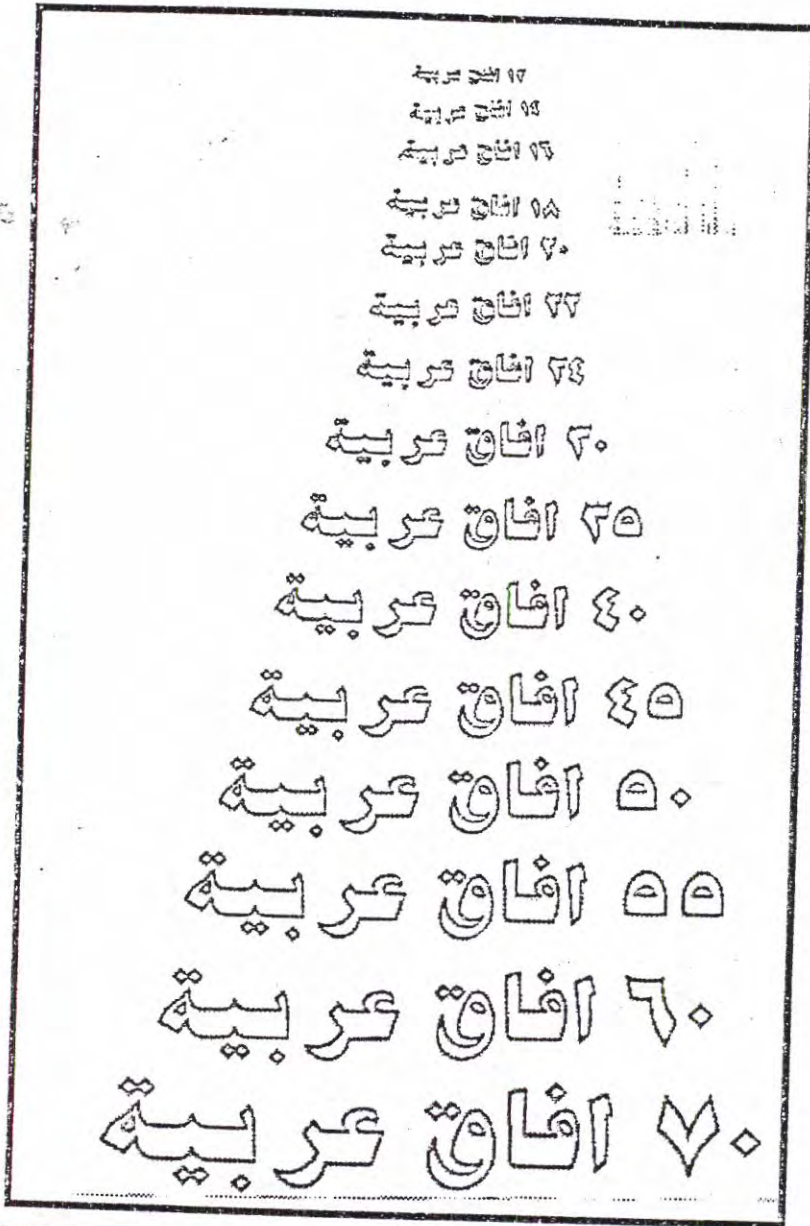 ١٢ افاق عربية
١٤ افاق عربية
١٦ افاق عربية
١٨ افاق عربية
٢٠ افاق عربية
٢٢ افاق عربية
٢٤ افاق عربية
٣٠ افاق عربية
٣٥ افاق عربية
٤٠ افاق عربية
٤٥ افاق عربية
٥٠ افاق عربية
٥٥ افاق عربية
٦٠ افاق عربية
٧٠ افاق عربية